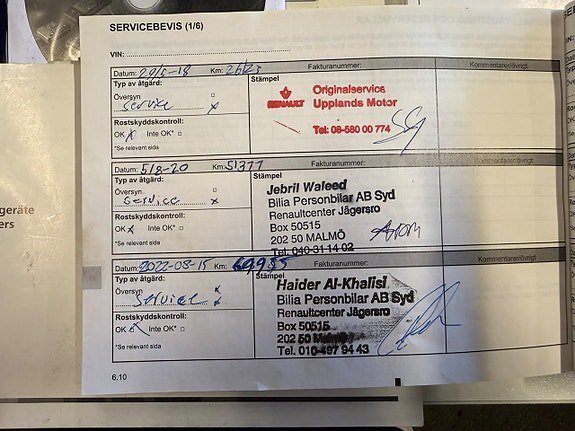 SERVICEBEVIS (1/6)
VIN:
Datum: 29/5-18 Km: Fakturanummer: Kommentarer/övrigt
Typ av åtgärd: Stämpel
Översyn
Service x
Originalservice
RENAULT Upplands Motor
Tel: 08-580 00 774
Rostskyddskontroll:
OK x Inte OK*
*Se relevant sida
Datum: 5/8-20 Km: 51377 Fakturanummer: Kommentarer/övrigt
Typ av åtgärd: Stämpel
Översyn
Service x
Jebril Waleed
Bilia Personbilar AB Syd
Renaultcenter Jägersro
Box 50515
202 50 MALMÖ
Tel. 040-31 14 02
Rostskyddskontroll:
OK x Inte OK*
*Se relevant sida
Datum: 2022-08-15 Km: 69985 Fakturanummer: Kommentarer/övrigt
Typ av åtgärd: Stämpel
Översyn x
Service x
Haider Al-Khalisi
Bilia Personbilar AB Syd
Renaultcenter Jägersro
Box 50515
202 50 Malmö
Tel. 010-497 94 43
Rostskyddskontroll:
OK x Inte OK*
*Se relevant sida
6.10
geräte
ers